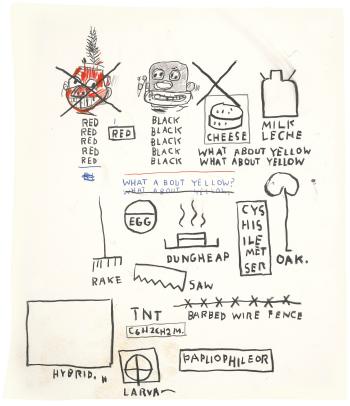 RED
RED
RED
RED
RED
RED
BLACK
BLACK
BLACK
BLACK
BLACK
CHEESE
MILK
LECHE
WHAT ABOUT YELLOW
WHAT ABOUT YELLOW
WHAT ABOUT YELLOW?
WHAT ABOUT YELLOW.
EGG
DUNGHEAP
CYS
HIS
ILE MET
SER
OAK.
RAKE
SAW
TNT
C6H2CH2M.
BARBED WIRE FENCE
HYBRID.
LARVA
PAPLIOPHILEOR